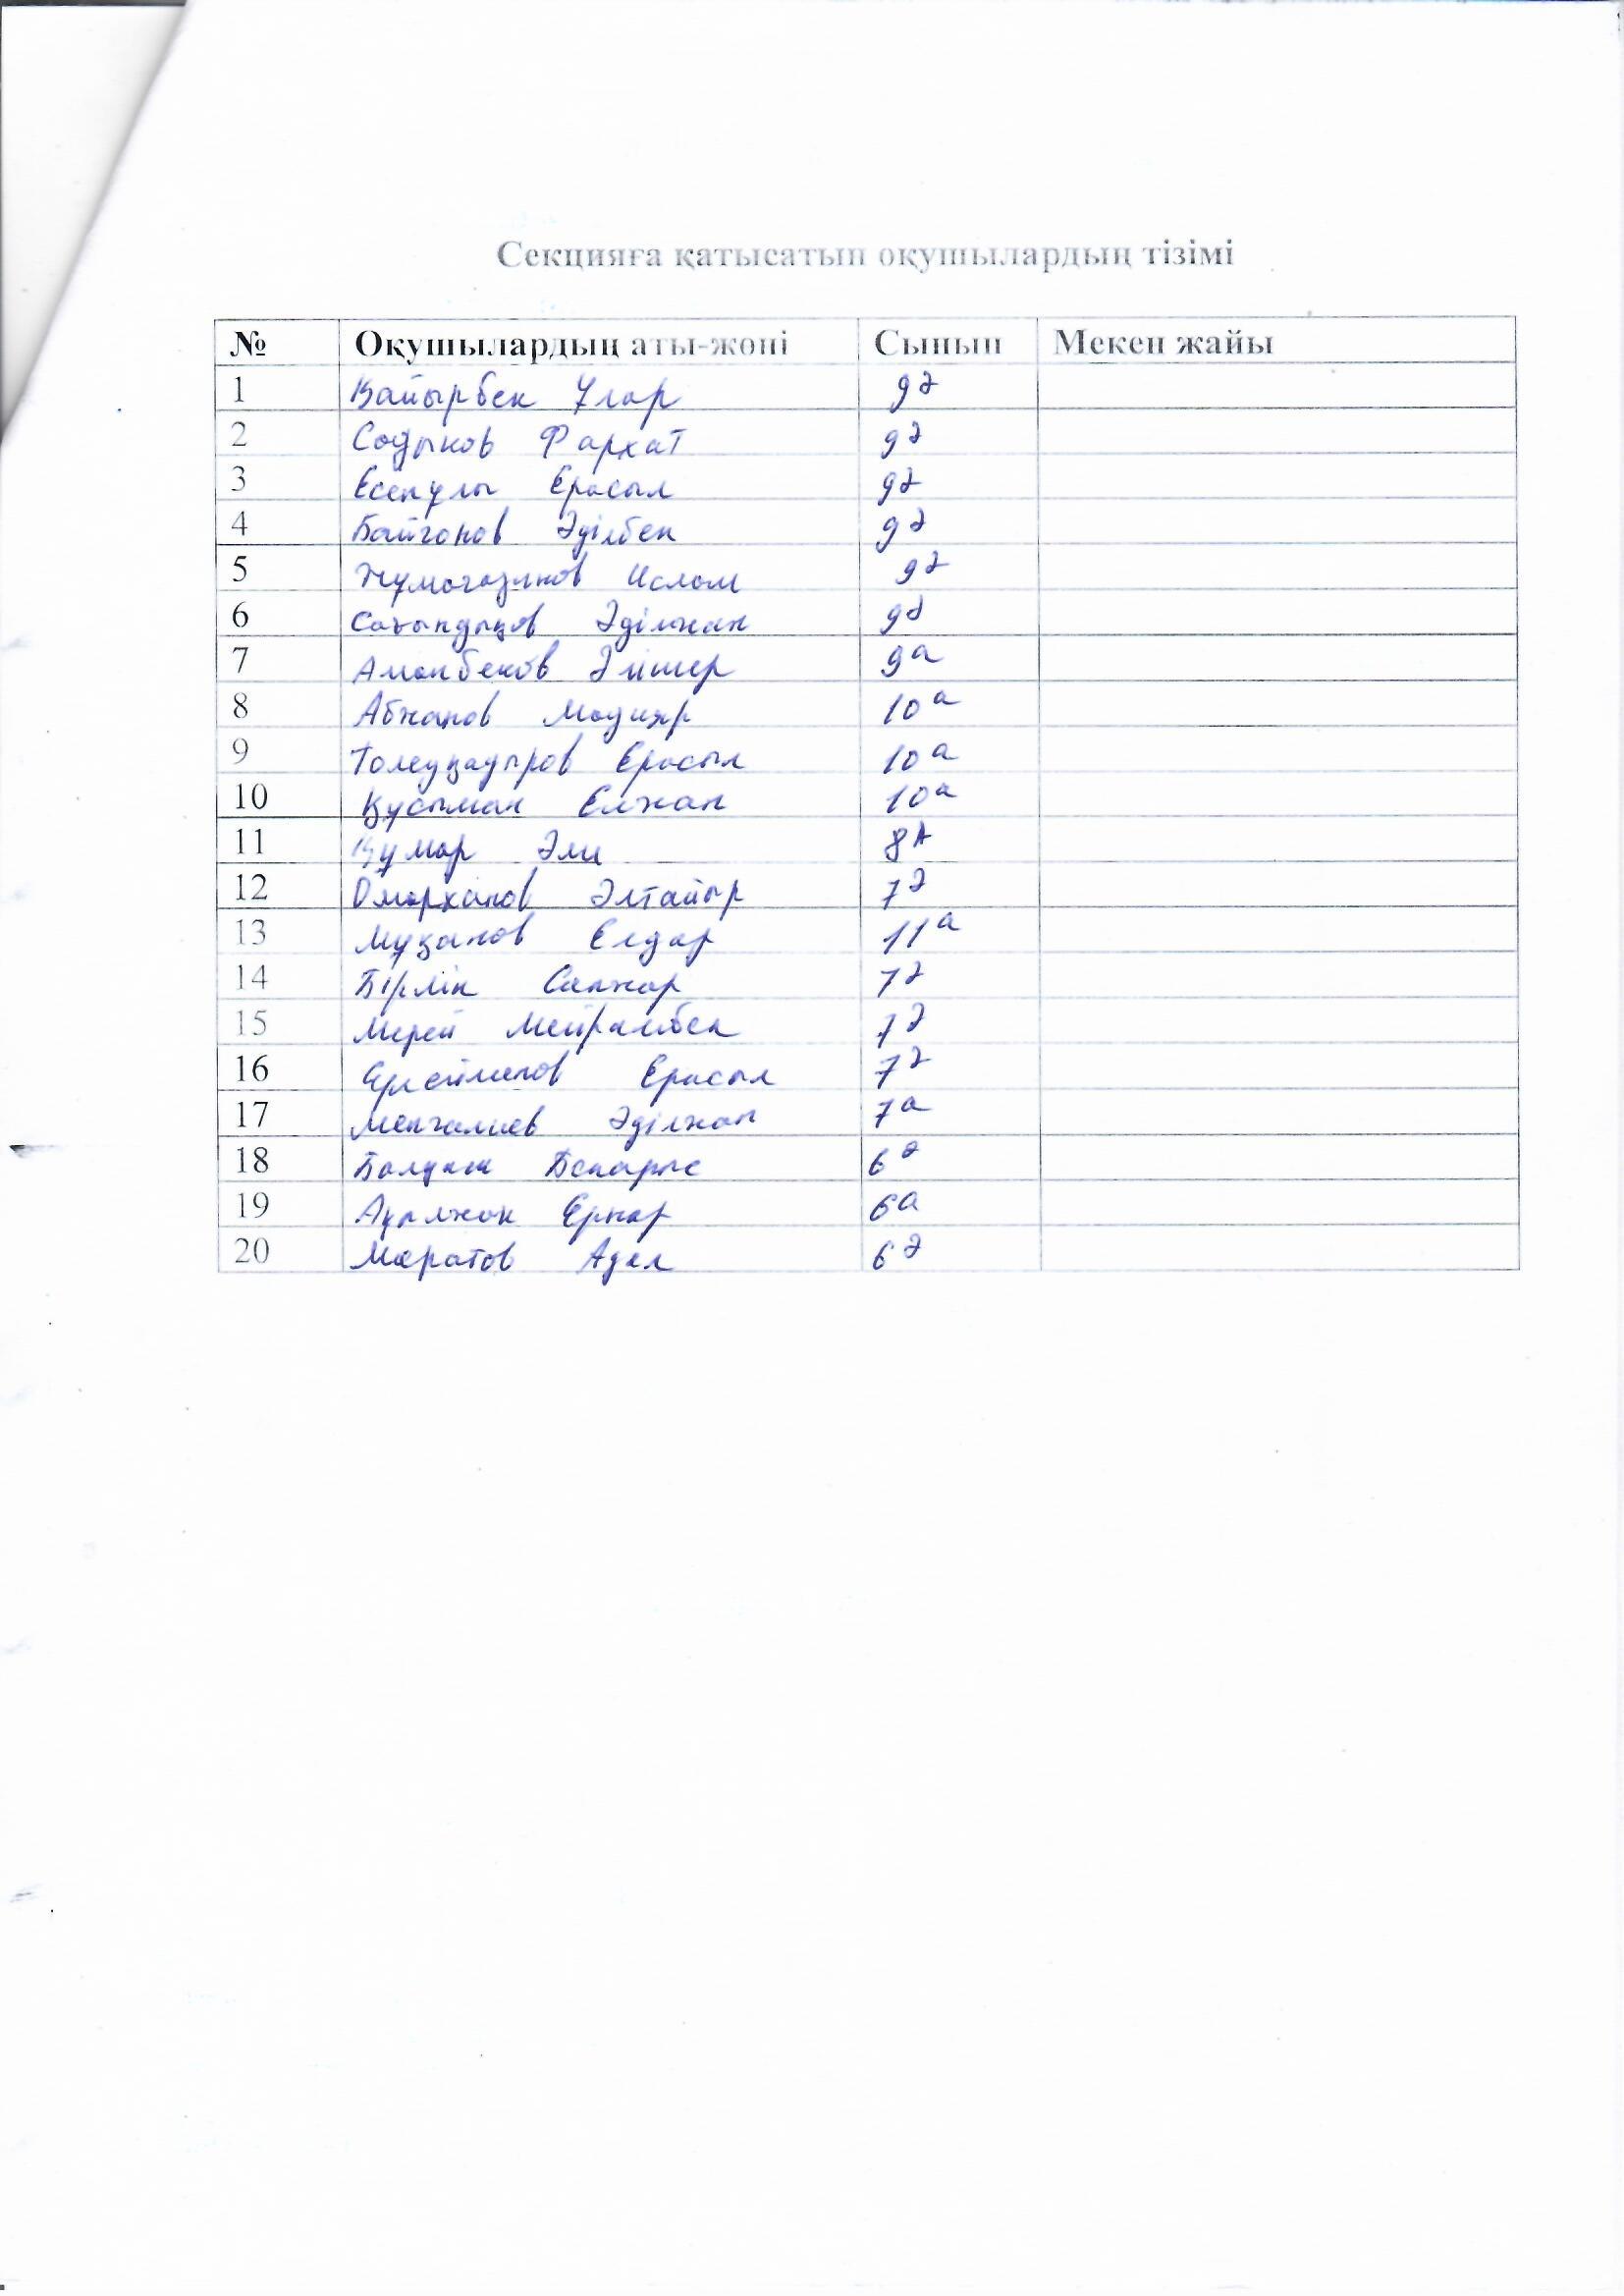 Секцияға қатысатын оқушылардың тізімі
№ Оқушылардың аты-жөні Сынып Мекен жайы
1 Қайырбек Ұлар 9ә
2 Садыков Фархат 9ә
3 Есенұлы Ерасыл 9ә
4 Байгонов Әділбек 9ә
5 Жұмагазинов Ислам 9ә
6 Сағындықов Әділжан 9ә
7 Аманбеков Әлішер 9а
8 Абжанов Мадияр 10а
9 Толеуқадыров Ерасыл 10а
10 Құсыман Елжан 10а
11 Құмар Әли 8А
12 Омарханов Әлтайыр 7ә
13 Мұқанов Елдар 11а
14 Бірлік Санжар 7ә
15 Мерей Мейрамбек 7ә
16 Ерасыл 7ә
17 Менгалиев Әділжан 7а
18 Бекарыс 6ә
19 Ақылжан Ернар 6а
20 Маратов Адел 6ә